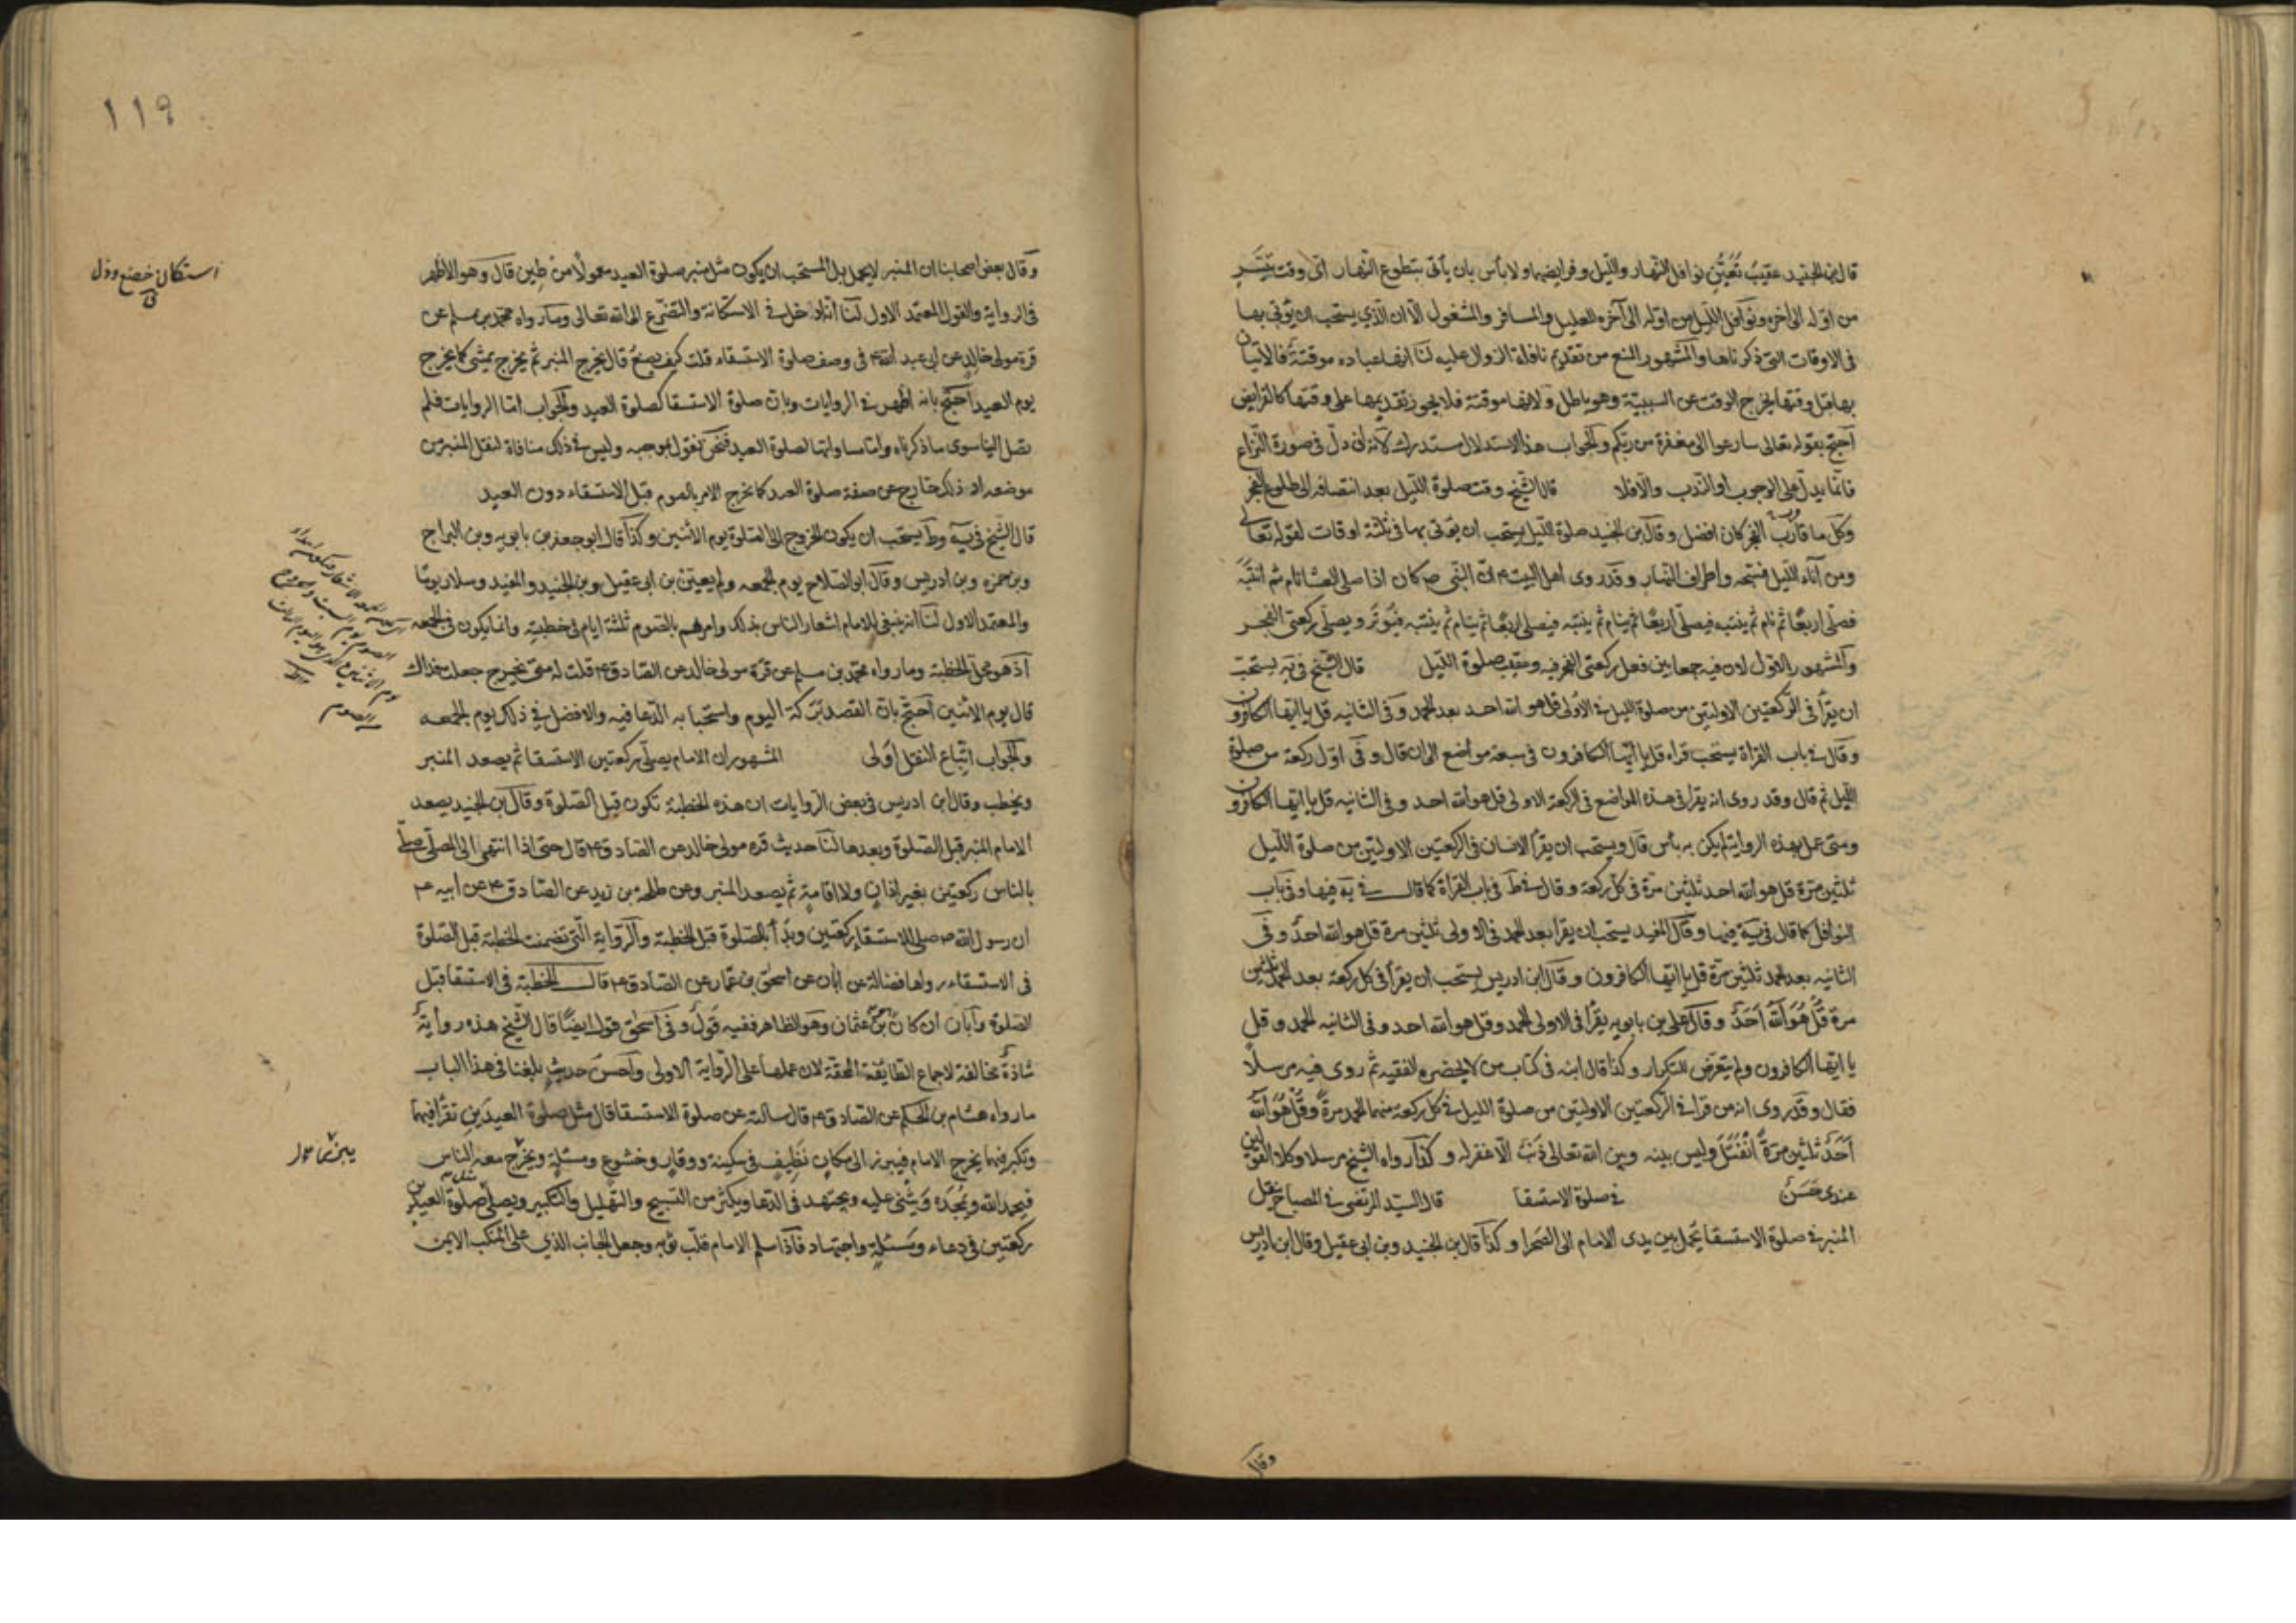 قال ابن الجنيد عقيب تعيين نوافل النهار والليل وفرايضهما ولا بأس بان يأتى بتطوع النهار اى وقت تيسر
من اوله الى اخره ونوافل الليل من اوله الى آخره للعليل والمسافر والمشغول الا ان الذي يستحب ان يؤتى بها
فى الاوقات التى ذكرناها والمشهور المنع من تقديم نافلة الزوال عليه لنا انها عبادة موقتة فالاتيان
بها قبل وقتها يخرج الوقت عن السببية وهو باطل ولانها موقتة فلا يجوز تقديمها على وقتها كالفرايض
احتج بقوله تعالى سارعوا الى مغفرة من ربكم والجواب هذا الاستدلال مستدرك لانه ان دل فى صورة النزاع
فانما يدل على الوجوب او الندب والا فلا قال الشيخ وقت صلوة الليل بعد انتصافه الى طلوع الفجر
وكل ما قارب الفجر كان افضل وقال ابن الجنيد صلوة الليل يستحب ان يؤتى بها فى ثلثة اوقات لقوله تعالى
ومن آناء الليل فسبحه واطراف النهار وقد روى اهل البيت ع ان النبى ص كان اذا صلى العشا نام ثم انتبه
فصلى اربعا ثم نام ثم ينتبه فيصلى اربعا ثم ينام ثم ينتبه فيصلى اربعا ثم ينام ثم ينتبه فيوتر ويصلى ركعتى الفجر
والمشهور الاول لان فيه جمعا بين فعل ركعتى الفجر فيه وعقيب صلوة الليل قال الشيخ فى يه يستحب
ان يقرأ فى الركعتين الاوليتين من صلوة الليل فى الاولى قل هو الله احد بعد الحمد وفى الثانيه قل يا ايها الكافرون
وقال فى باب القراة يستحب قراءة قل يا ايها الكافرون فى سبعة مواضع الى ان قال وفى اول ركعة من صلوة
الليل ثم قال وقد روى انه يقرأ فى هذه المواضع فى الركعة الاولى قل هو الله احد وفى الثانيه قل يا ايها الكافرون
ومتى عمل بهذه الرواية لم يكن به بأس قال ويستحب ان يقرأ الانسان فى الركعتين الاوليتين من صلوة الليل
ثلثين مرة قل هو الله احد ثلثين مرة فى كل ركعة وقال فى ط فى باب القراة كما قال فى يه فيها وفى باب
النوافل كما قال فى يه فيها وقال المفيد يستحب ان يقرأ بعد الحمد فى الاولى ثلثين مرة قل هو الله احد وفى
الثانيه بعد الحمد ثلثين مرة قل يا ايها الكافرون وقال ابن ادريس يستحب ان يقرأ فى كل ركعة بعد الحمد ثلثين
مرة قل هو الله احد وقال على بن بابويه يقرأ فى الاولى الحمد وقل هو الله احد وفى الثانيه الحمد وقل
يا ايها الكافرون ولم يتعرض للتكرار وكذا قال ابنه فى كتاب من لا يحضره الفقيه ثم روى فيه مرسلا
فقال وقد روى ان من قرا فى الركعتين الاوليتين من صلوة الليل فى كل ركعة منهما الحمد مرة وقل هو الله
احد ثلثين مرة انفتل وليس بينه وبين الله تعالى ذنب الا غفر له وكذا رواه الشيخ مرسلا وكلا القولين
عندى حسن فى صلوة الاستسقا قال السيد المرتضى فى المصباح ينقل
المنبر فى صلوة الاستسقا يحمل بين يدى الامام الى الصحرا وكذا قال ابن الجنيد وبن ابى عقيل وقال ابن ادريس
وقال
١١٩
وقال بعض اصحابنا ان المنبر لا يحمل بل المستحب ان يكون مثل منبر صلوة العيد معمولا من طين قال وهو الاظهر
فى الرواية والقول المعتمد الاول لنا انه ادخل فى الاستكانة والتضرع الى الله تعالى وما رواه محمد بن مسلم عن
قرة مولى خالد عن ابى عبد الله ع فى وصف صلوة الاستسقاء قلت كيف يصنع قال يخرج المنبر ثم يخرج يمشى كما يخرج
يوم العيد احتج بانه اظهر فى الروايات وبان صلوة الاستسقا كصلوة العيد والجواب اما الروايات فلم
تصل الينا سوى ما ذكرناه واما مساواتها لصلوة العيد فنحن نقول بموجبه وليس فى ذلك منافاة لنقل المنبر من
موضعه اذ ذلك خارج عن صفة صلوة العيد كما يخرج الامر بالصوم قبل الاستسقاء دون العيد
قال الشيخ فى يه وط يستحب ان يكون الخروج الى الصلوة يوم الاثنين وكذا قال ابو جعفر بن بابويه وبن البراج
وبن حمزه وبن ادريس وقال ابو الصلاح يوم الجمعه ولم يعين بن ابى عقيل وبن الجنيد والمفيد وسلار يوما
والمعتمد الاول لنا انه ينبغى للامام اشعار الناس بذلك وامرهم بالصوم ثلثة ايام فى خطبته وانما يكون فى الجمعه
اذ هو محل الخطبة وما رواه محمد بن مسلم عن قرة مولى خالد عن الصادق ع قلت له متى يخرج جعلت فداك
قال يوم الاثنين احتج بان القصد بركة اليوم واستحبابه الدعا فيه والافضل فى ذلك يوم الجمعه
والجواب اتباع النقل اولى المشهور ان الامام يصلى ركعتين الاستسقا ثم يصعد المنبر
ويخطب وقال ابن ادريس فى بعض الروايات ان هذه الخطبة تكون قبل الصلوة وقال ابن الجنيد يصعد
الامام المنبر قبل الصلوة وبعدها لنا حديث قره مولى خالد عن الصادق ع قال حتى اذا انتهى الى المصلى صلى
بالناس ركعتين بغير اذان ولا اقامة ثم يصعد المنبر وعن طلحه بن زيد عن الصادق ع عن ابيه ع
ان رسول الله ص صلى للاستسقاء ركعتين وبدأ بالصلوة قبل الخطبة والرواية التى تضمنت الخطبة قبل الصلوة
فى الاستسقاء رواها فضالة عن ابان عن اسحق بن عمار عن الصادق ع قال الخطبة فى الاستسقا قبل
الصلوة وابان ان كان بن عثمان وهو الظاهر ففيه قول وفى اسحق قول ايضا قال الشيخ هذه رواية
شاذة مخالفة لاجماع الطايفة المحقة لان عملها على الرواية الاولى واحسن حديث بلغنا فى هذا الباب
ما رواه هشام بن الحكم عن الصادق ع قال سالته عن صلوة الاستسقا قال مثل صلوة العيدين تقرأ فيهما
وتكبر فيهما يخرج الامام فيبرز الى مكان نظيف فى سكينة ووقار وخشوع ومسئلة ويخرج معه الناس
فيحمد الله ويمجده ويثنى عليه ويجتهد فى الدعا ويكثر من التسبيح والتهليل والتكبير ويصلى مثل صلوة العيدين
ركعتين فى دعاء ومسئلة واجتهاد فاذا سلم الامام قلب ثوبه وجعل الجانب الذي على المنكب الايمن
استكان خضع وذل
ق